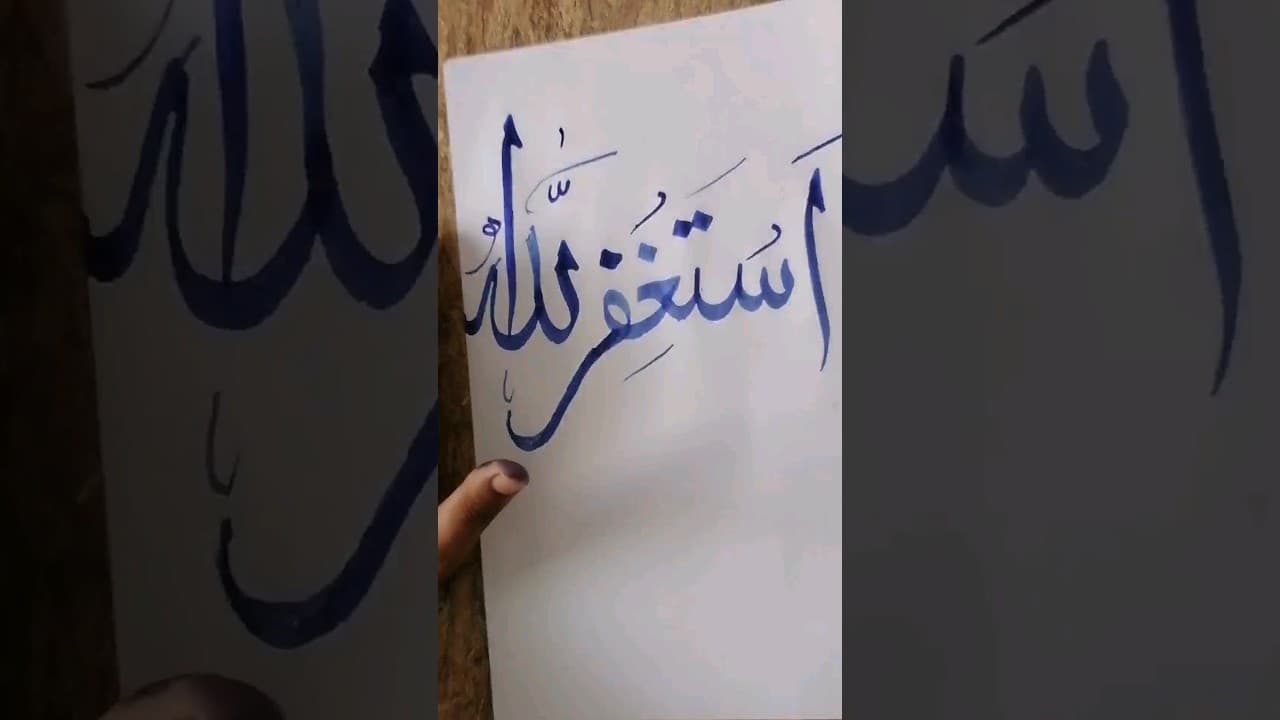 اَسْتَغْفِرُ اللّٰهُ